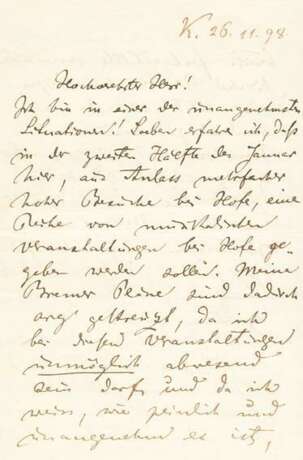 K. 26.11.98
Hochverehrter Herr!
Ich bin in einer der unangenehmsten
Situationen! Soeben erfahre ich, daß
in der zweiten Hälfte des Januar
hier, aus Anlass mehrfacher
hoher Besuche bei Hofe, eine
Reihe von musikalischen
Veranstaltungen bei Hofe ge-
geben werden sollen. Meine
Bremer Pläne sind dadurch
arg gekreuzt, da ich
bei diesen Veranstaltungen
unmöglich abwesend
sein darf und da ich
weiss, wie peinlich und
unangenehm es ist,